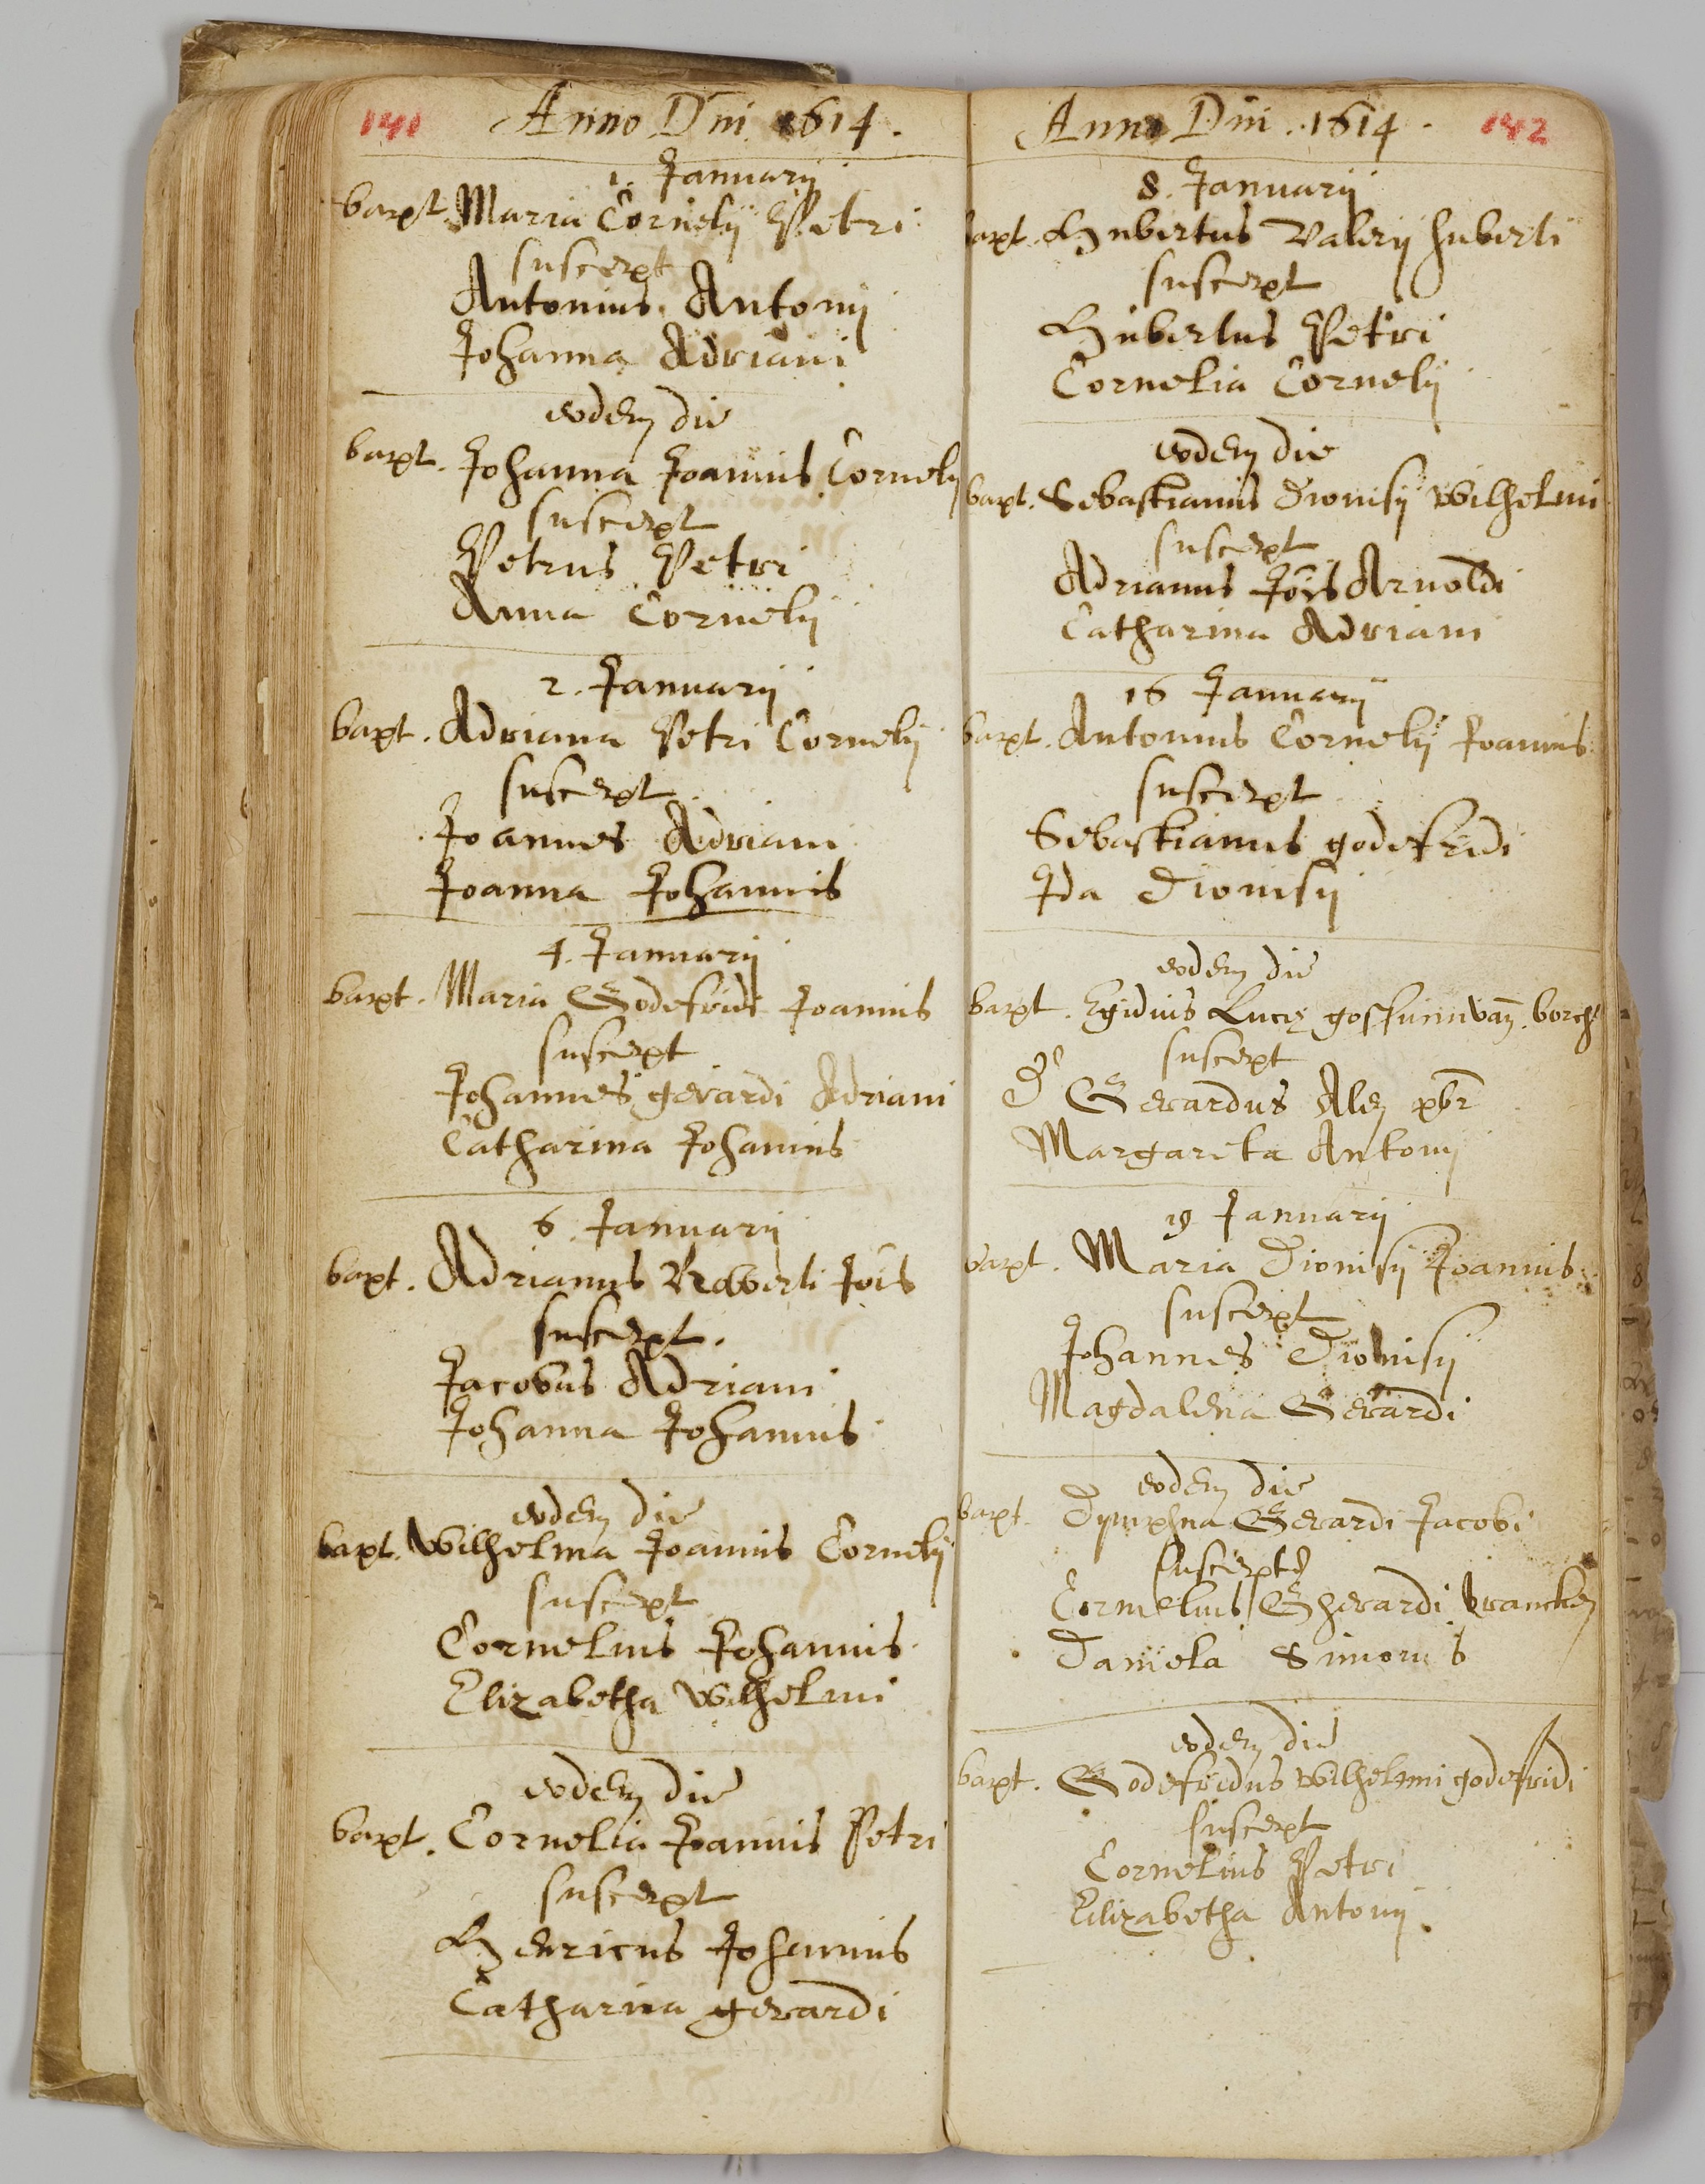 141 Anno Dni 1614.
1. Januarij
bapt. Maria Cornelij Petri
suscept
Antonius Antonij
Johanna Adriani
eodem die
bapt. Johanna Joannis Cornelij
suscept
Petrus Petri
Anna Cornelij
2. Januarij
bapt. Adriana Petri Cornelij
suscept
Joannes Adriani
Joanna Johannis
4. Januarij
bapt. Maria Godefridi Joannis
suscept
Johannes gerardi Adriani
Catharina Johannis
6. Januarij
bapt. Adrianus Robberti Jois
suscept.
Jacobus Adriani
Johanna Johannis
eodem die
bapt. Wilhelma Joannis Cornelij
suscept
Cornelius Johannis
Elizabetha Wilhelmi
eodem die
bapt. Cornelia Joannis Petri
suscept
Henricus Johannis
Catharina gerardi
Anno Dni. 1614. 142
8. Januarij
bapt. Hubertus Valerij huberti
suscept
Hubertus Petri
Cornelia Cornelij
eodem die
bapt. Sebastianus Dionisij Wilhelmi
suscept
Adrianus Jois Arnoldi
Catharina Adriani
16 Januarij
bapt. Antonius Cornelij Joannis
suscept
Sebastianus godefridi
Ida Dionisij
eodem die
bapt. Egidius Lucę gossuini van borcht
suscept
Dˢ Gerardus Alen pbr
Margarita Antonij
19 Januarij
bapt. Maria Dionisij Joannis
suscept
Johannes Dionisij
Magdalena Gerardi
eodem die
bapt. Dymphna Gerardi Jacobi
suscept
Cornelius Gherardi vrancken
Daniela Simonis
eodem die
bapt. Godefridus Wilhelmi godefridi
suscept
Cornelius Petri
Elizabetha Antonij